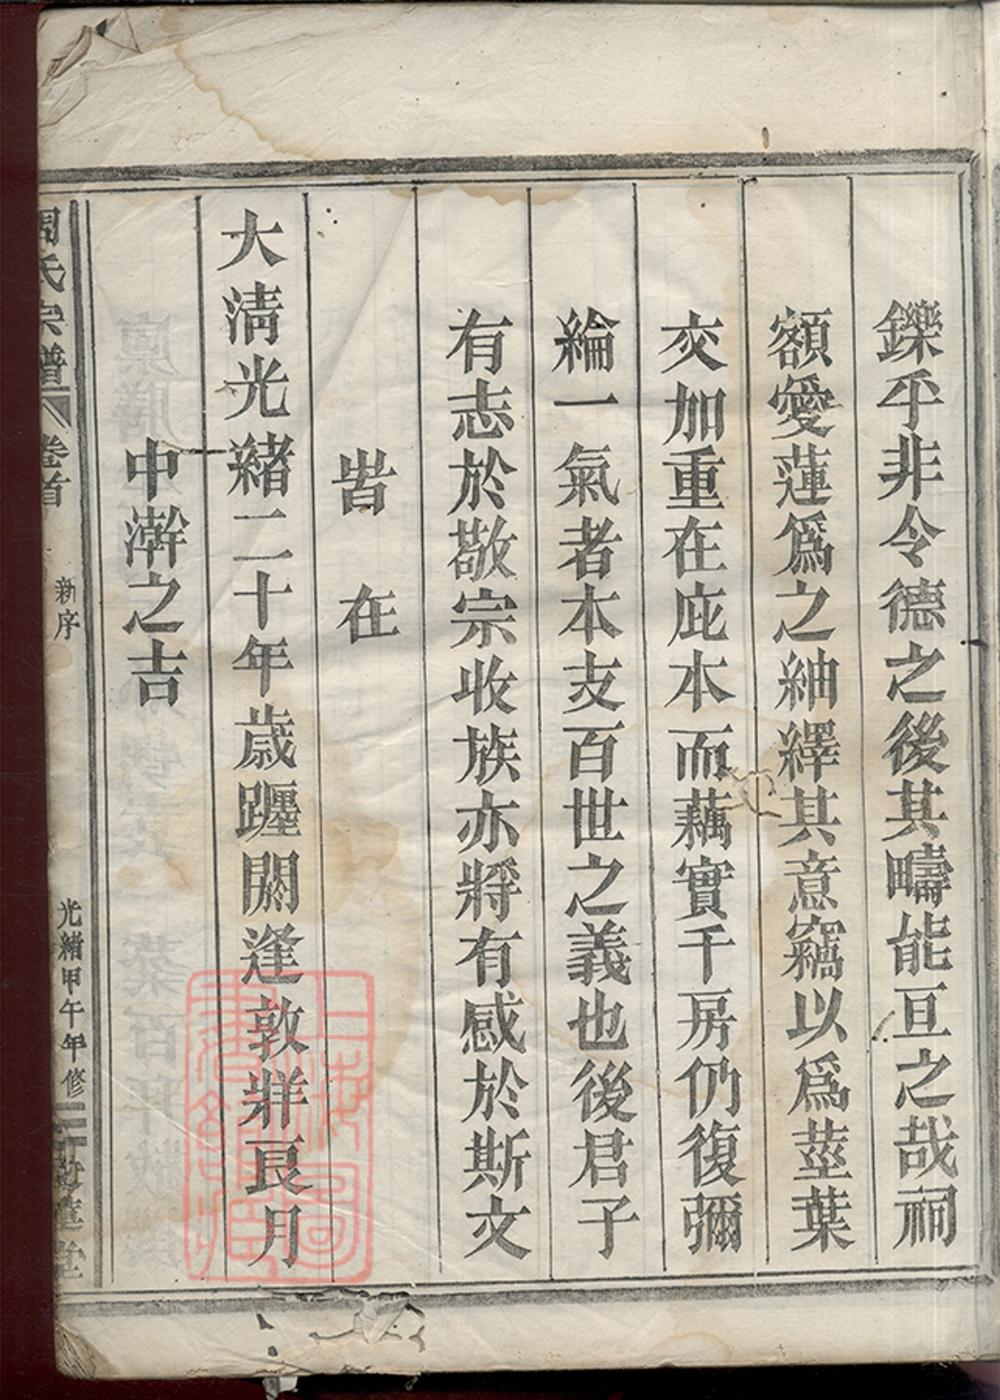 鑠乎非令德之後其疇能亘之哉祠
額愛蓮爲之紬繹其意竊以爲莖葉
交加重在庇本而藕實千房仍復彌
綸一氣者本支百世之義也後君子
有志於敬宗收族亦將有感於斯文
旹在
大淸光緒二十年歲躔閼逢敦牂良月
中澣之吉
周氏宗譜 卷首 新序 光緒甲午年修